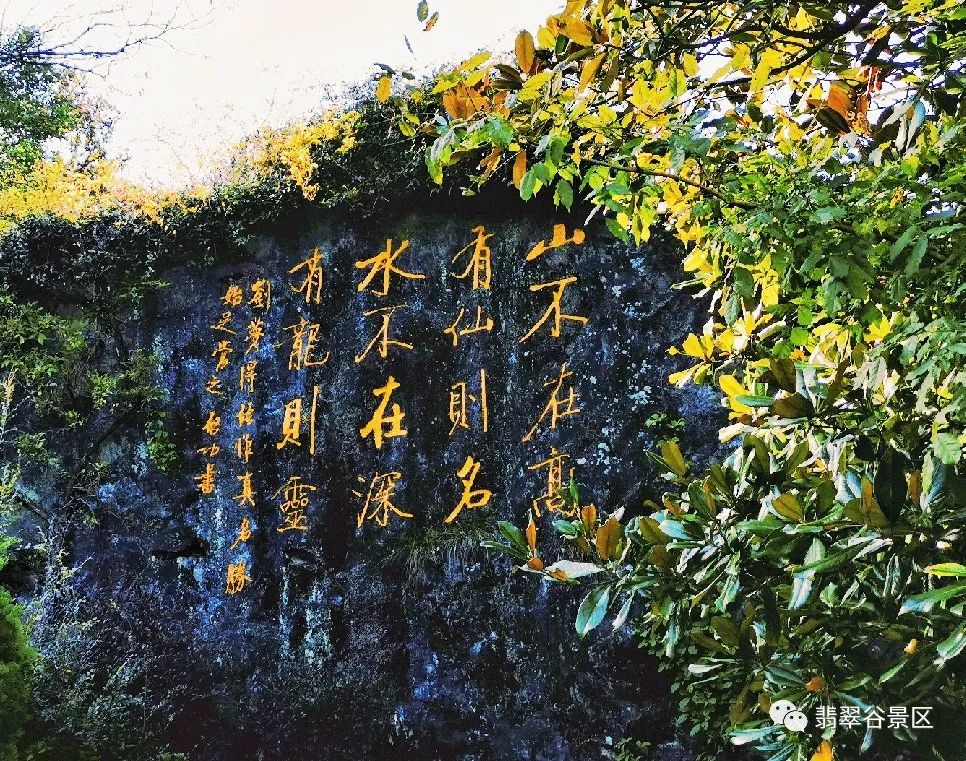 山不在高
有仙則名
水不在深
有龍則靈
劉夢得作真名勝
始足當之啟功書
翡翠谷景区